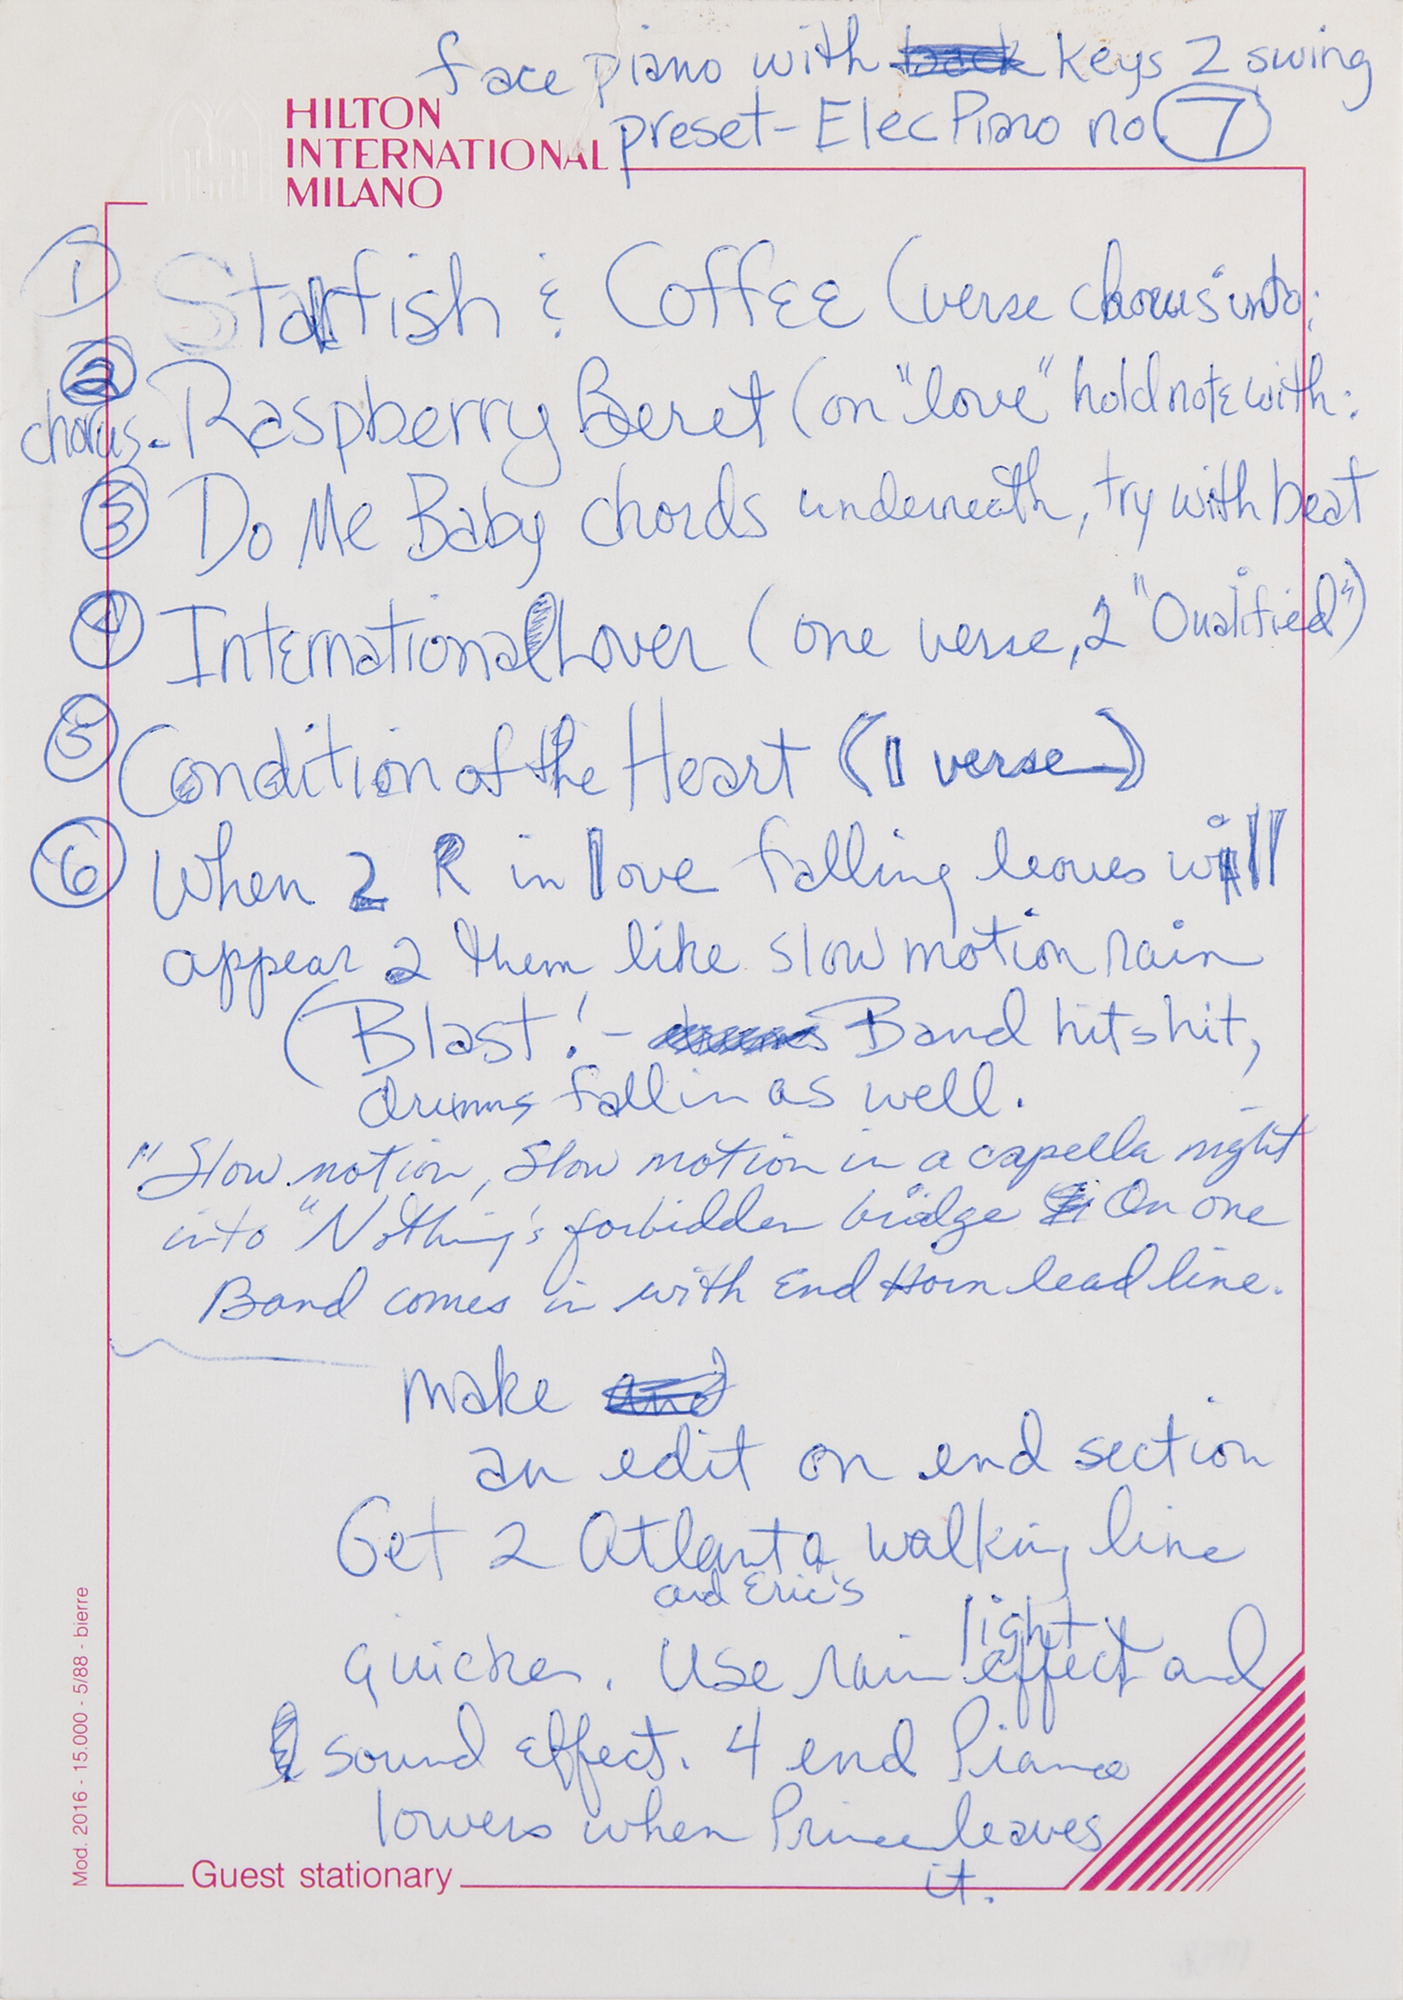 face piano with back keys 2 swing
preset - Elec Piano no 7
HILTON
INTERNATIONAL
MILANO
1 Starfish & Coffee (verse chorus into:
2
chorus - Raspberry Beret (on "love" hold note with:
3 Do Me Baby chords underneath, try with beat
4 International Lover (one verse, 2 "Qualified")
5 Condition of the Heart (1 verse)
6 When 2 R in love falling leaves will
appear 2 them like slow motion rain
(Blast! - drums Band hits hit,
drums fall in as well.
"Slow motion, Slow motion in a capella night
into "Nothing's forbidden bridge On one
Band comes in with End Horn lead line.
make and
an edit on end section
Get 2 Atlanta walking line
and Eric's
quicker. Use rain light effect and
sound effect. 4 end Piano
lowers when Prince leaves
it.
Guest stationary
Mod. 2016 - 15.000 - 5/88 - bierre